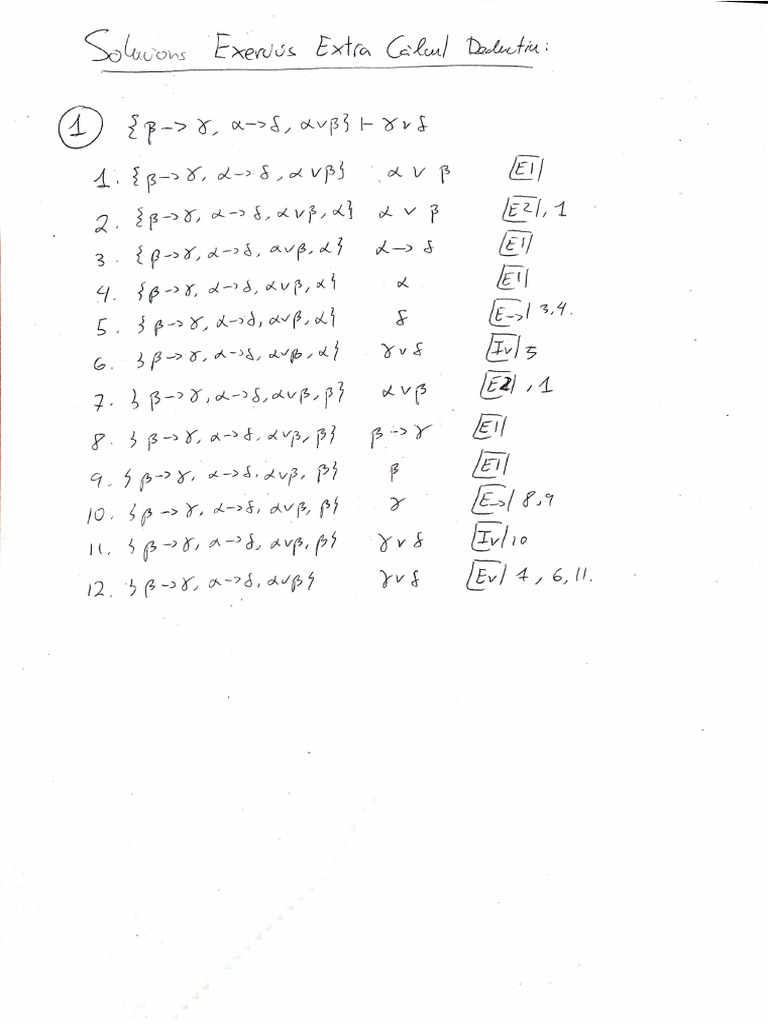 Solucions Exercicis Extra Càlcul Deductiu:
1 {β->γ, α->δ, α∨β} ⊢ γ∨δ
1. {β->γ, α->δ, α∨β} α∨β E1
2. {β->γ, α->δ, α∨β, α} α∨β E2, 1
3. {β->γ, α->δ, α∨β, α} α->δ E1
4. {β->γ, α->δ, α∨β, α} α E1
5. {β->γ, α->δ, α∨β, α} δ E-> 3,4.
6. {β->γ, α->δ, α∨β, α} γ∨δ I∨ 5
7. {β->γ, α->δ, α∨β, β} α∨β E2, 1
8. {β->γ, α->δ, α∨β, β} β->γ E1
9. {β->γ, α->δ, α∨β, β} β E1
10. {β->γ, α->δ, α∨β, β} γ E-> 8,9
11. {β->γ, α->δ, α∨β, β} γ∨δ I∨ 10
12. {β->γ, α->δ, α∨β} γ∨δ E∨ 1, 6, 11.